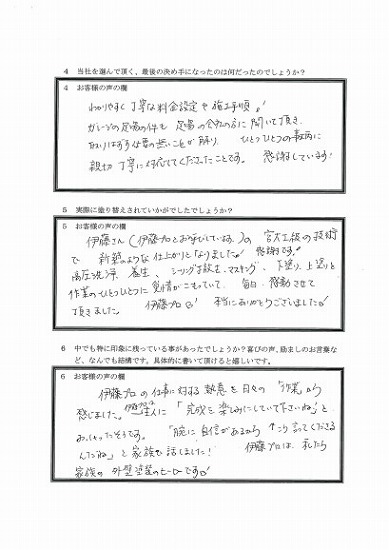 4 当社を選んで頂く、最後の決め手になったのは何だったのでしょうか?
4 お客様の声の欄
わかりやすく丁寧な料金設定や施工手順!
ガレージの足場の件も 足場の会社の方に聞いて頂き、
取りはずす必要の無いことが解り、 ひとつひとつの事柄に
親切丁寧に対応してくださったことです。 感謝しています!
5 実際に塗り替えされていかがでしたでしょうか?
5 お客様の声の欄
伊藤さん(伊藤プロとお呼びしています。)の 宮大工級の技術
で 新築のような仕上がりとなりました! 感謝です!
高圧洗浄、養生、シーリング打設、マスキング、下塗り、上塗りと
作業のひとつひとつに愛情がこもっていて、毎日、感動させて
頂きました。 伊藤プロ 本当にありがとうございました!
6 中でも特に印象に残っている事があったでしょうか?喜びの声、励ましのお言葉な
ど、なんでも結構です。具体的に書いて頂けると嬉しいです。
6 お客様の声の欄
伊藤プロの仕事に対する熱意を日々の「作業」から
感じました。 主人に「完成を楽しみにしていて下さいね」と
おっしゃったそうです。 「腕に自信があるから こう言ってくださる
んだね」と家族で話しました! 伊藤プロは、私たち
家族の 外壁塗装のヒーローです!